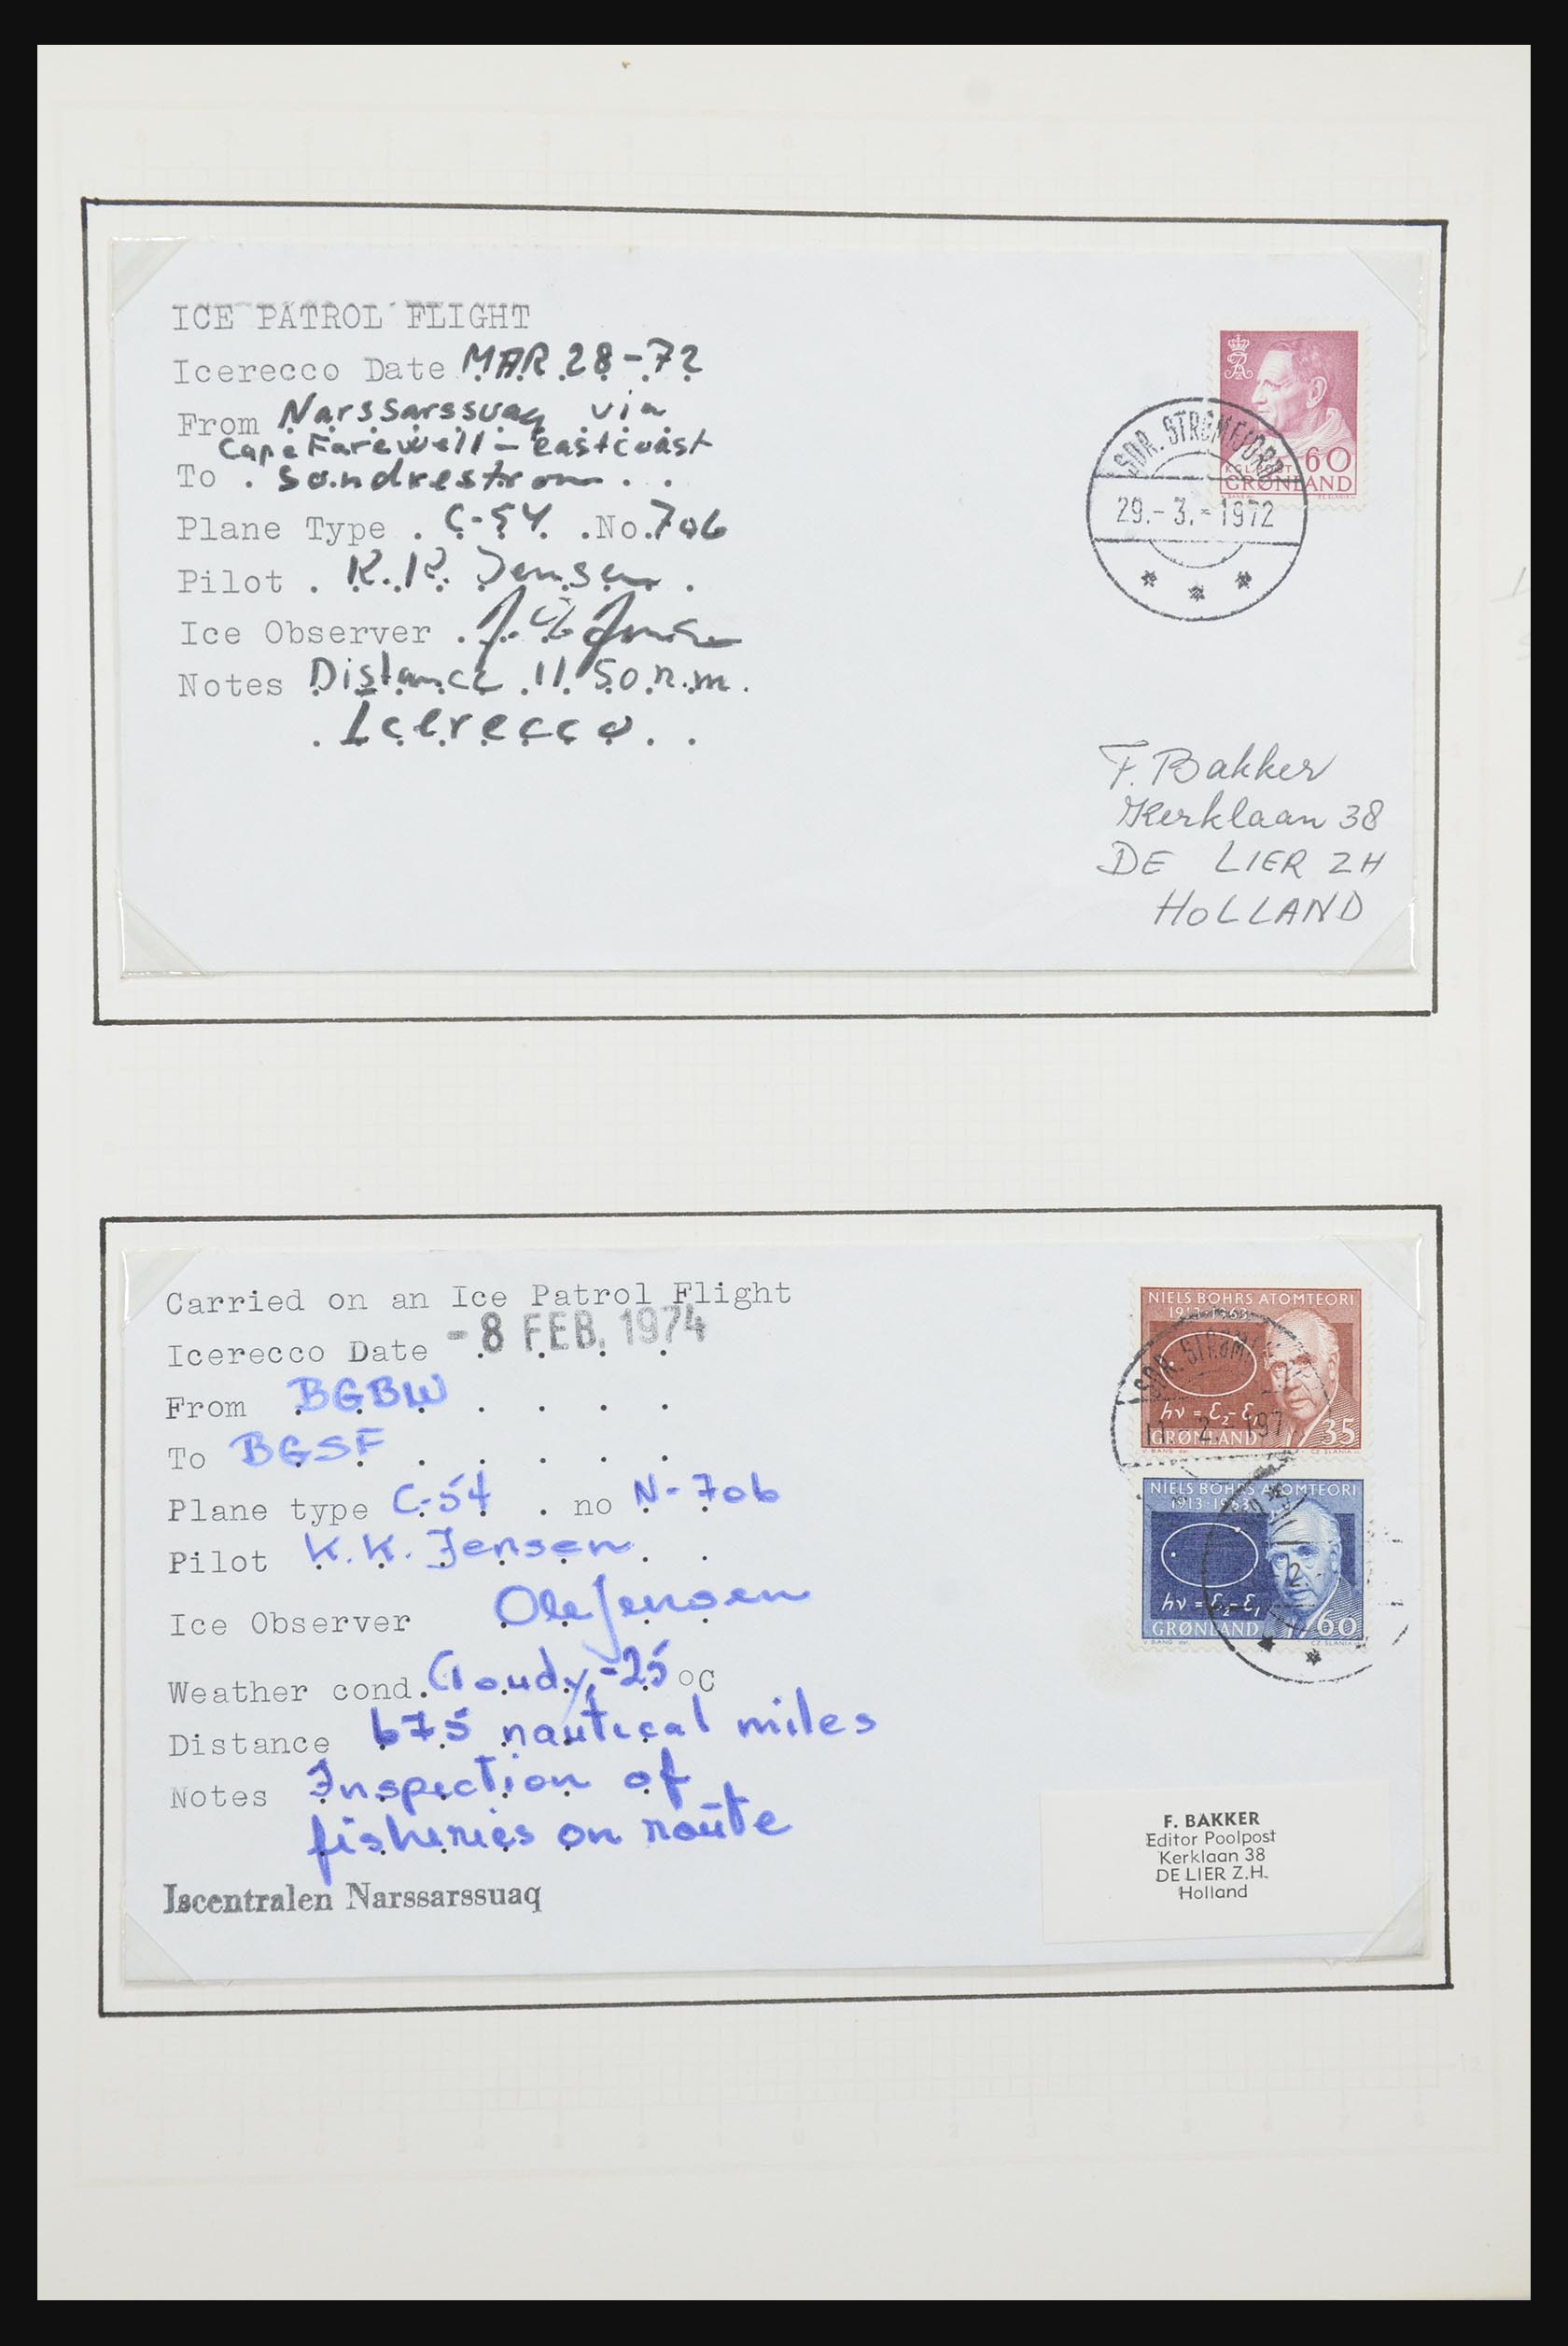 ICE PATROL FLIGHT
Icerecco Date MAR 28-72
From Narssarssuaq via
Cape Farewell - eastcoast
To . Sondrestrom . .
Plane Type . C-54 . No. 706
Pilot . K.K. Jensen .
Ice Observer .
Notes Distance 1150 n.m.
. Icerecco . .
60
KGL. POST
GRØNLAND
SDR. STRØMFJORD
29.- 3.- 1972
F. Bakker
Kerklaan 38
DE LIER ZH
HOLLAND
Carried on an Ice Patrol Flight
Icerecco Date - 8 FEB. 1974
From BGBW . . . .
To BGSF . . . . .
Plane type C-54 . no N-706
Pilot K.K. Jensen . .
Ice Observer Ole Jensen
Weather cond. Cloudy, -25 °C
Distance 675 nautical miles
Notes Inspection of
fisheries on route
Iscentralen Narssarssuaq
NIELS BOHRS ATOMTEORI
1913-1963
hν = ε2-ε1
GRØNLAND 35
SDR. STRØM
NIELS BOHRS ATOMTEORI
1913-1963
hν = ε2-ε1
GRØNLAND 60
F. BAKKER
Editor Poolpost
Kerklaan 38
DE LIER Z.H.
Holland